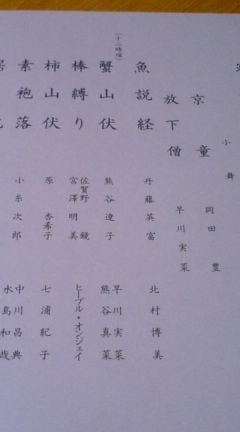 小舞
京童　岡田豊
放下僧　早川実菜
（十二時頃）
魚説経　丹藤英富　北村博美
蟹山伏　熊谷達子　早川実菜　熊谷真菜
棒縛り　佐賀野鏡　宮澤明美　ヒーブル・オンジェイ
柿山伏　原杏希子　七浦紀子
素袍落　小糸次郎　中川昌典　水島和哉